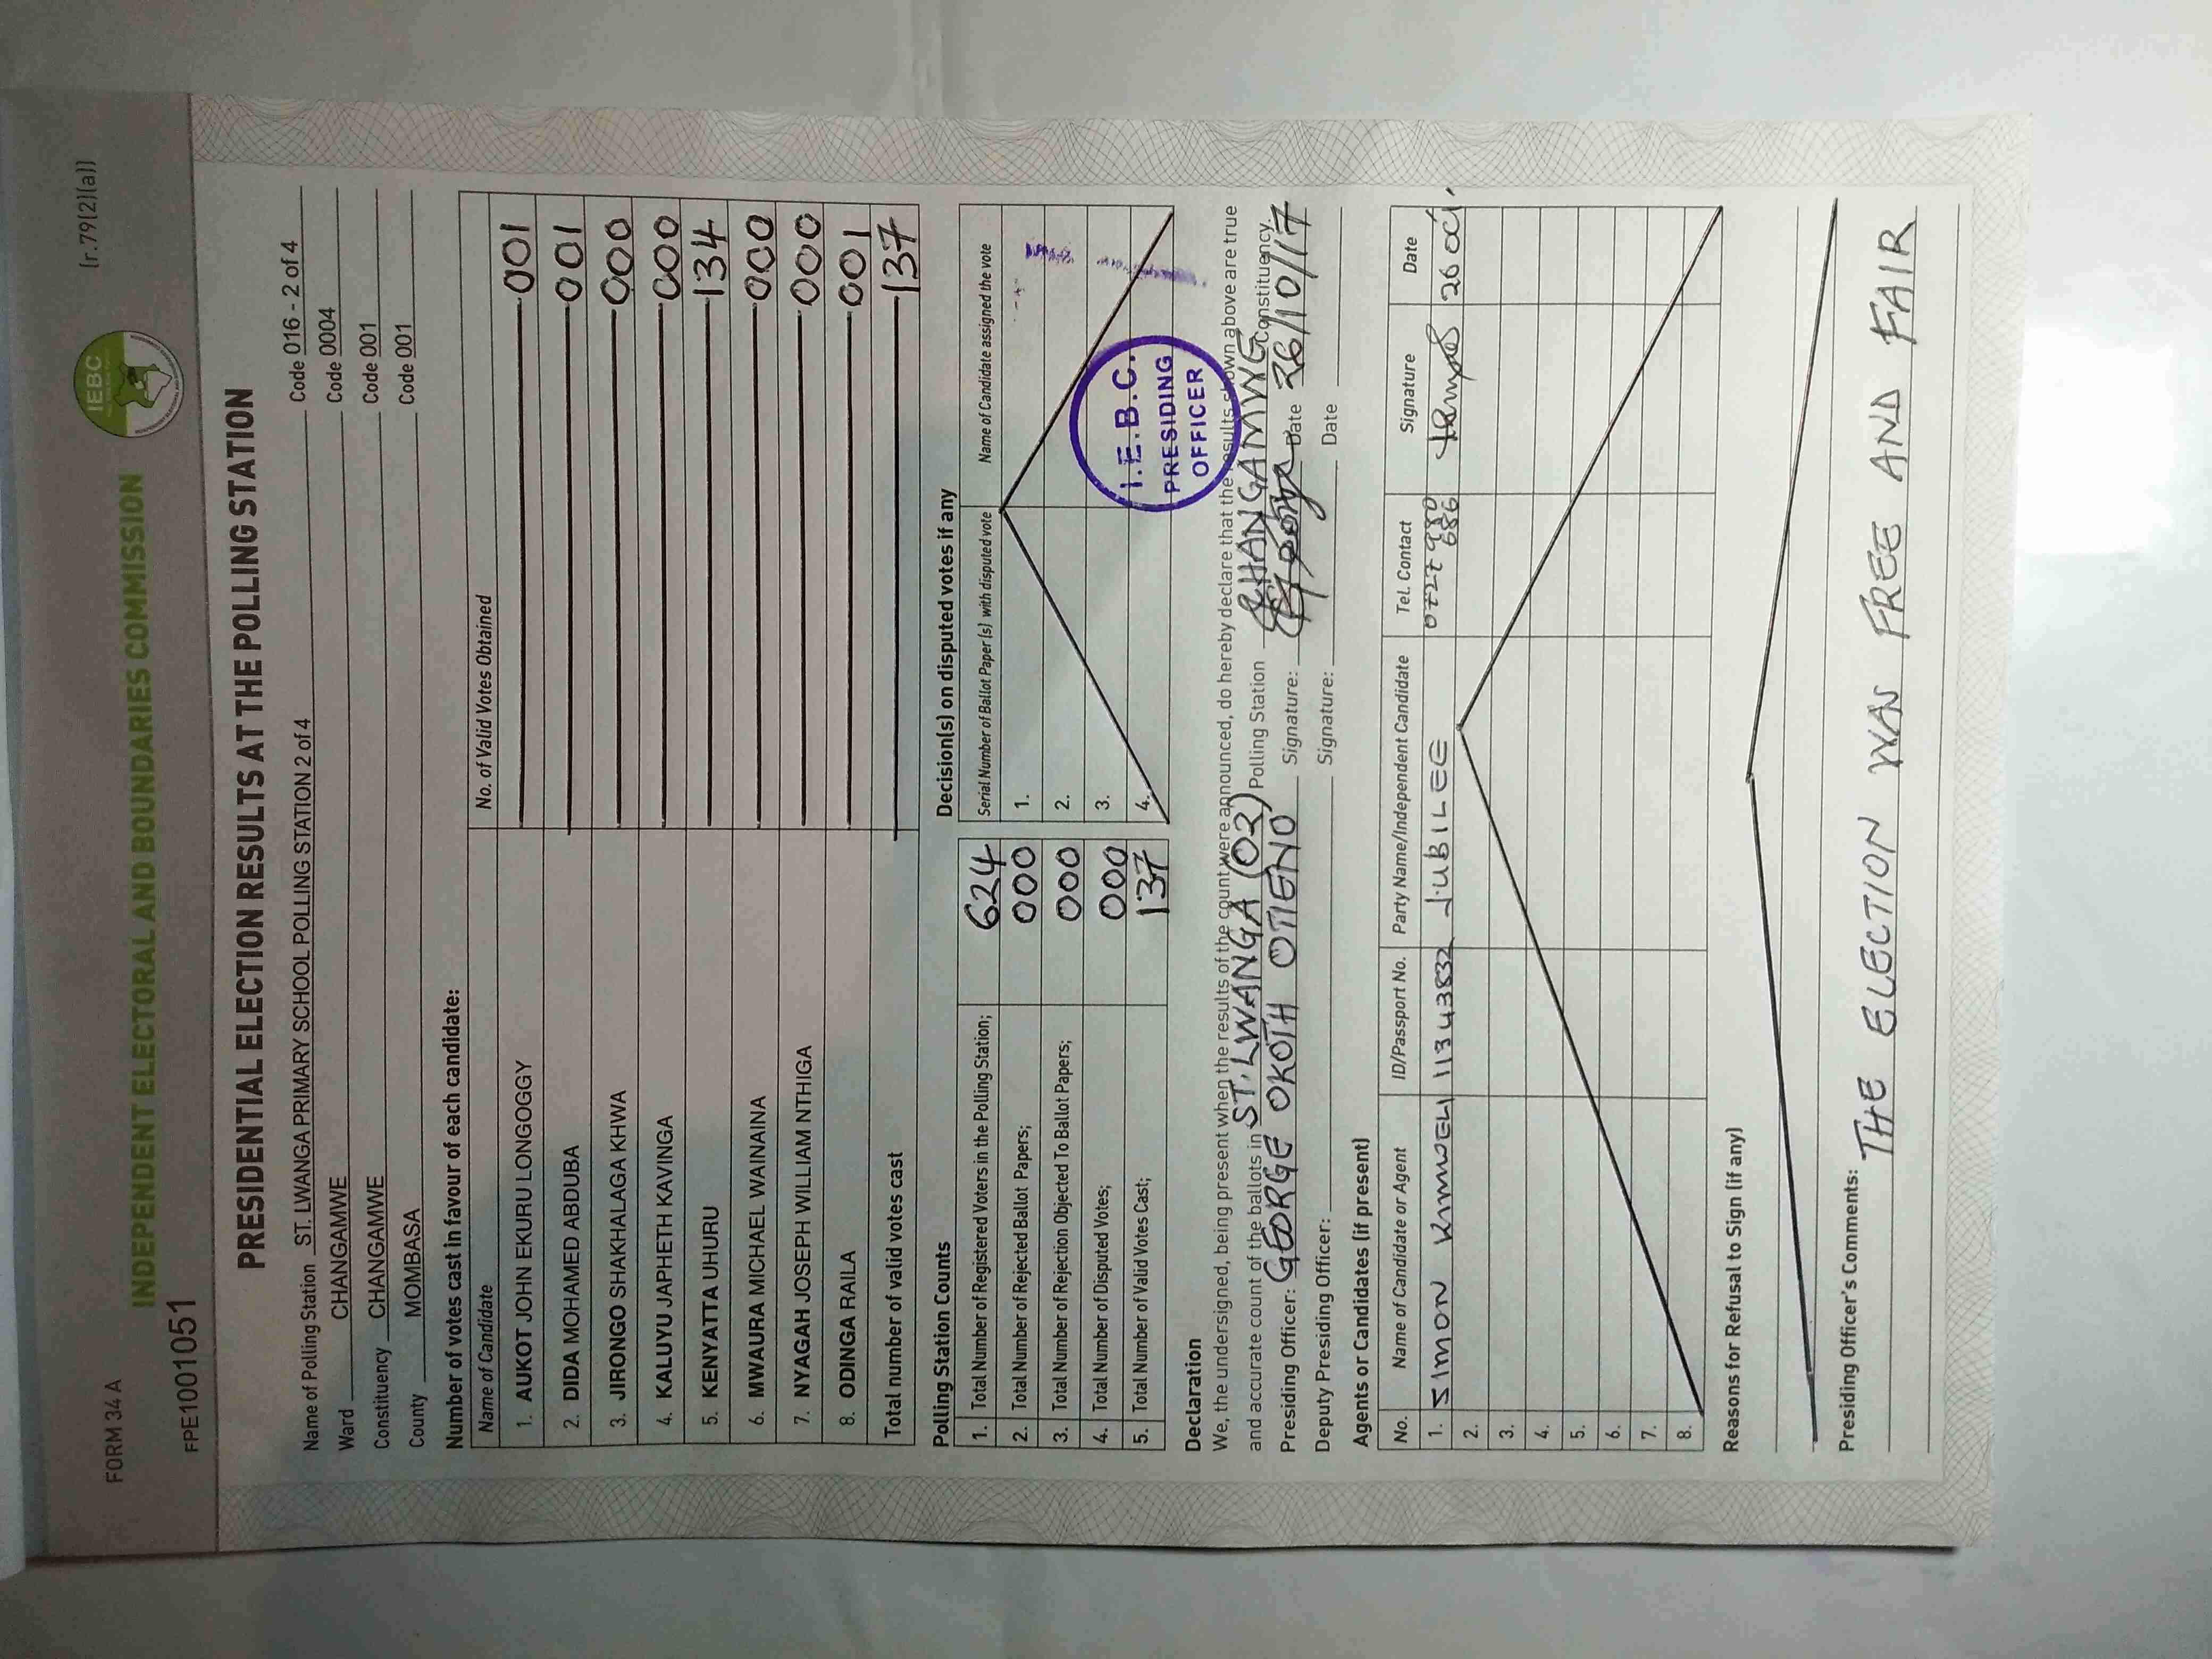 FORM 34 A
[r.79(2)(a)]
IEBC
INDEPENDENT ELECTORAL AND BOUNDARIES COMMISSION
FPE1001051
PRESIDENTIAL ELECTION RESULTS AT THE POLLING STATION
Name of Polling Station ST. LWANGA PRIMARY SCHOOL POLLING STATION 2 of 4 Code 016 - 2 of 4
Ward CHANGAMWE Code 0004
Constituency CHANGAMWE Code 001
County MOMBASA Code 001
Number of votes cast in favour of each candidate:
Name of Candidate No. of Valid Votes Obtained
1. AUKOT JOHN EKURU LONGOGGY 001
2. DIDA MOHAMED ABDUBA 001
3. JIRONGO SHAKHALAGA KHWA 000
4. KALUYU JAPHETH KAVINGA 000
5. KENYATTA UHURU 134
6. MWAURA MICHAEL WAINAINA 000
7. NYAGAH JOSEPH WILLIAM NTHIGA 000
8. ODINGA RAILA 001
Total number of valid votes cast 137
Polling Station Counts
1. Total Number of Registered Voters in the Polling Station; 624
2. Total Number of Rejected Ballot Papers; 000
3. Total Number of Rejection Objected To Ballot Papers; 000
4. Total Number of Disputed Votes; 000
5. Total Number of Valid Votes Cast; 137
Decision(s) on disputed votes if any
Serial Number of Ballot Paper(s) with disputed vote Name of Candidate assigned the vote
1.
2.
3.
4.
I.E.B.C.
PRESIDING
OFFICER
Declaration
We, the undersigned, being present when the results of the count were announced, do hereby declare that the results shown above are true
and accurate count of the ballots in ST. LWANGA (02) Polling Station CHANGAMWE Constituency.
Presiding Officer: GEORGE OKOTH OTIENO Signature: Date 26/10/17
Deputy Presiding Officer: Signature: Date
Agents or Candidates (if present)
No. Name of Candidate or Agent ID/Passport No. Party Name/Independent Candidate Tel. Contact Signature Date
1. SIMON 11343832 JUBILEE 0727 980 686 26 oct
2.
3.
4.
5.
6.
7.
8.
Reasons for Refusal to Sign (if any)
Presiding Officer's Comments:
THE ELECTION WAS FREE AND FAIR